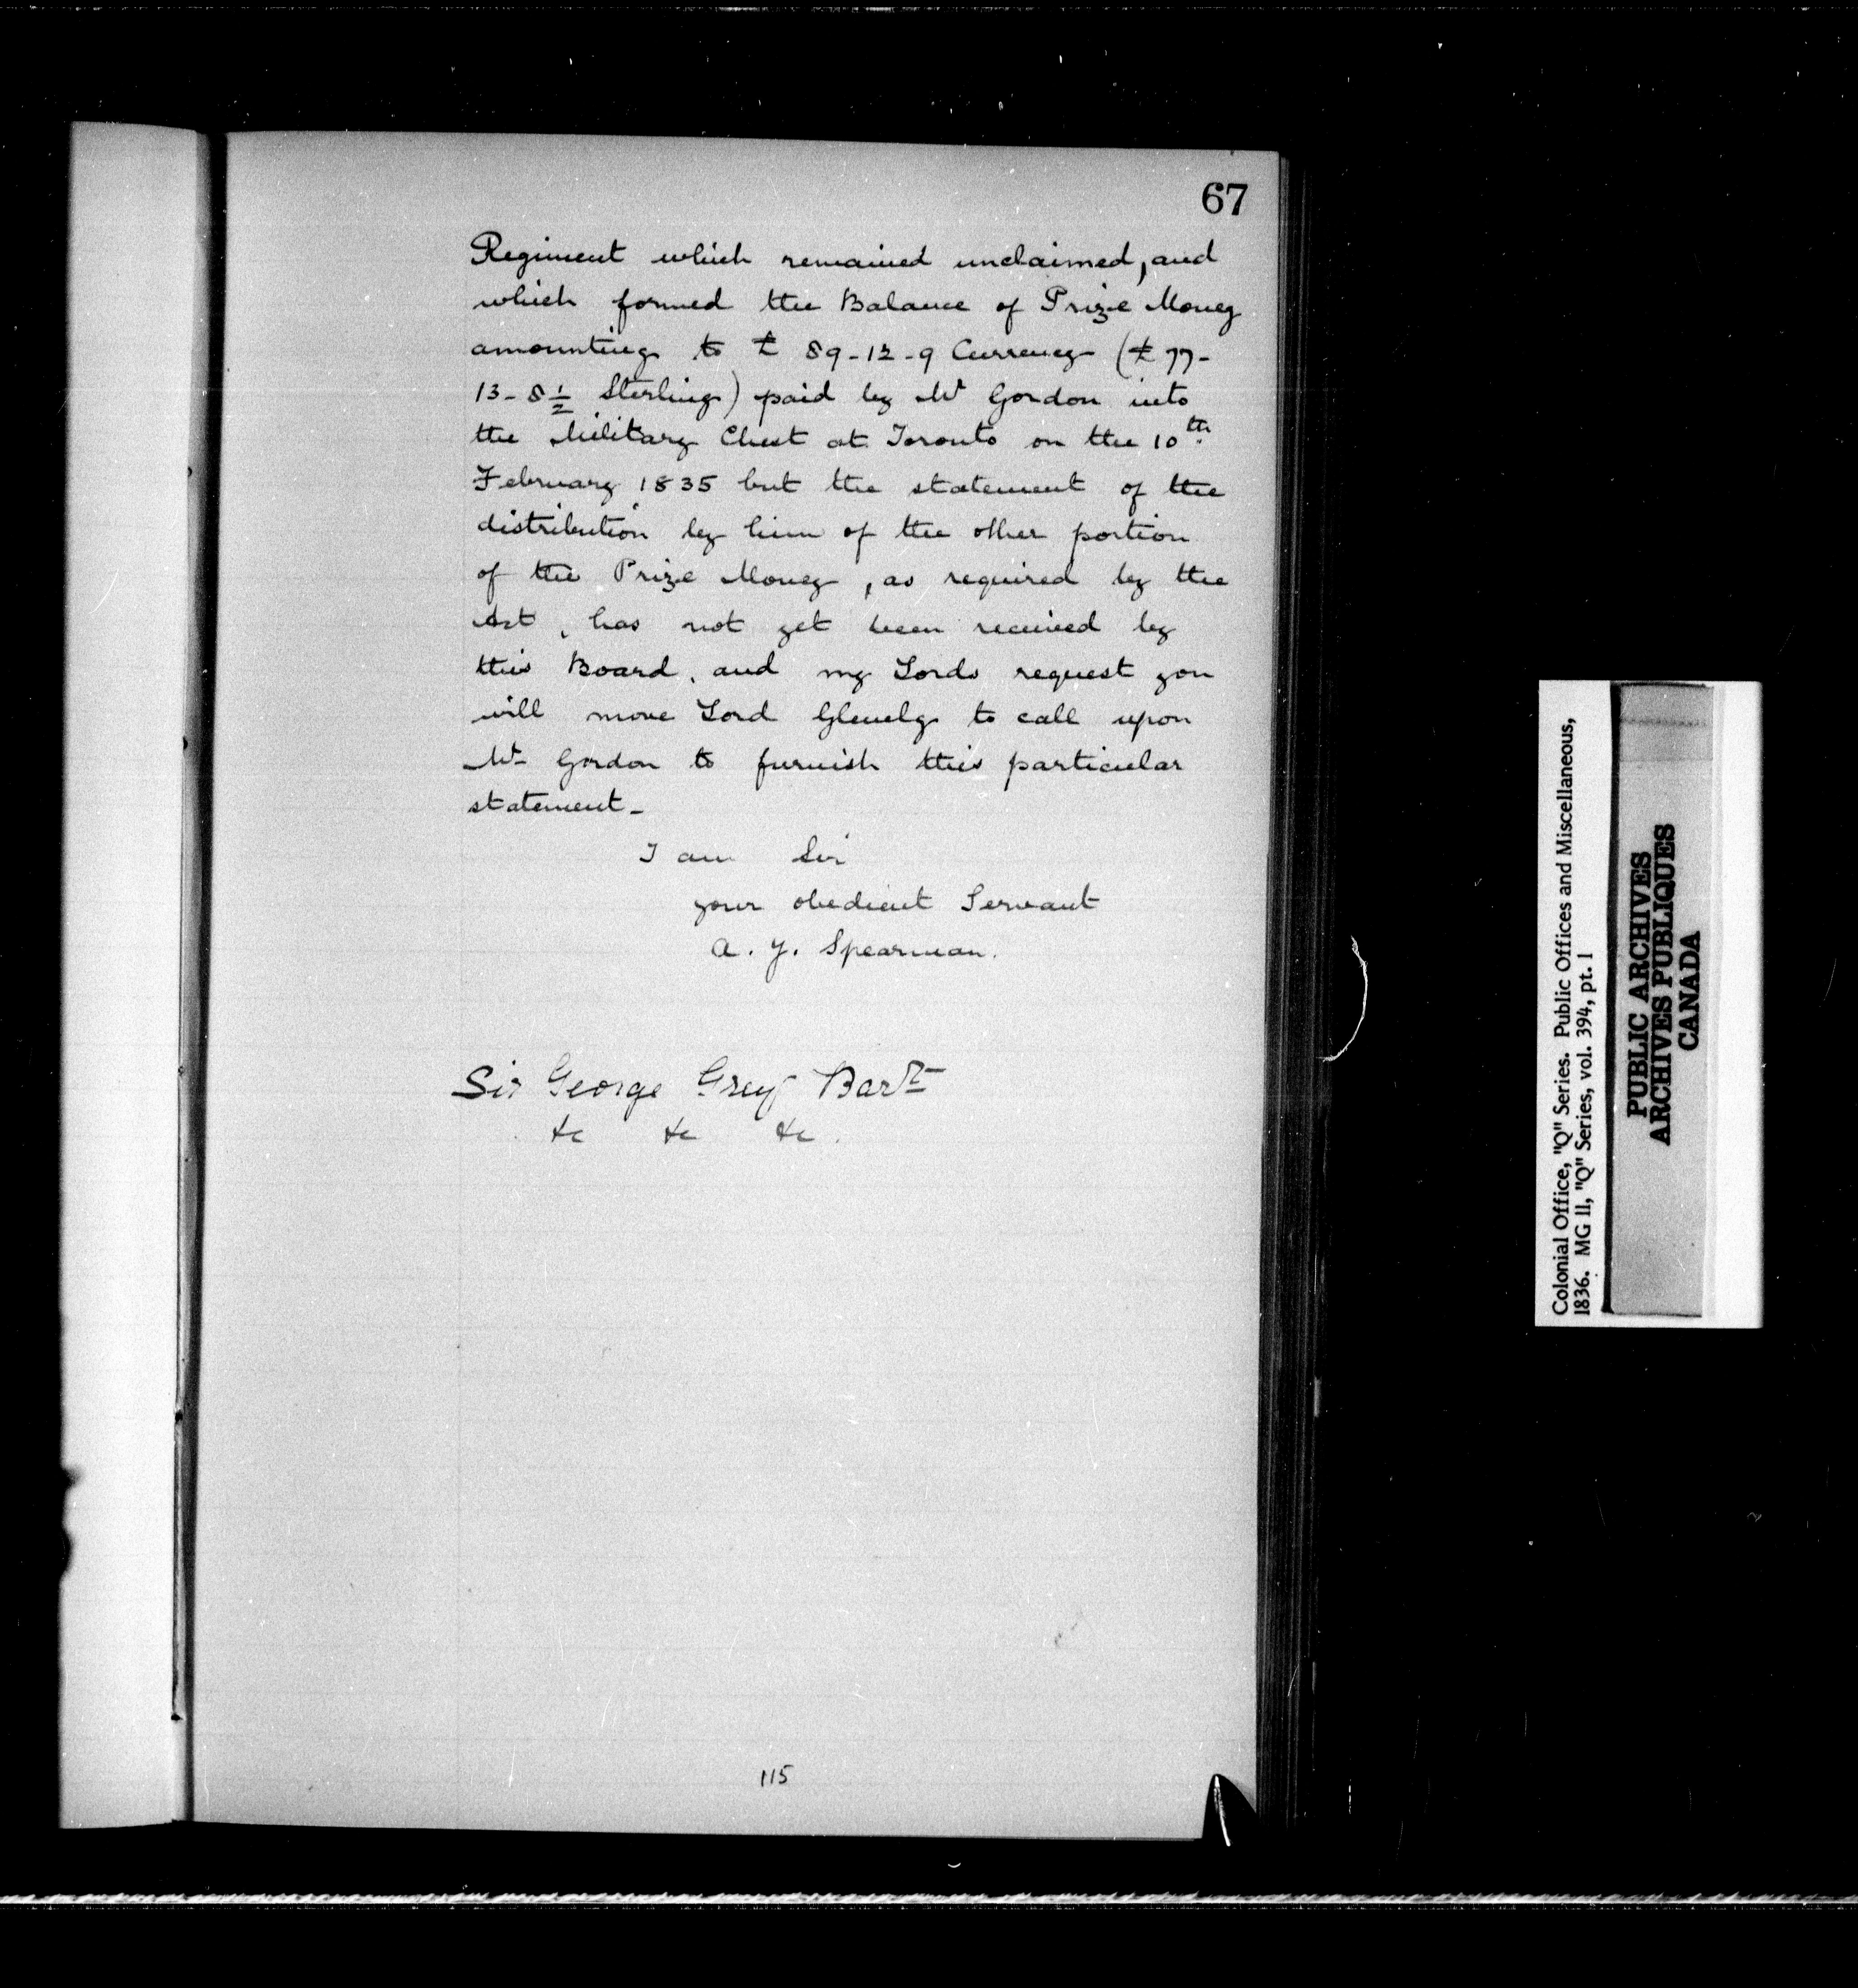 67
Regiment which remained unclaimed, and
which formed the Balance of Prize Money
amounting to £ 89-12-9 Currency (£ 77-
13-8½ Sterling) paid by Mr Gordon into
the Military Chest at Toronto on the 10th
February 1835 but the statement of the
distribution by him of the other portion
of the Prize Money, as required by the
Act, has not yet been received by
this Board, and my Lords request you
will move Lord Glenelg to call upon
Mr Gordon to furnish this particular
statement_
I am Sir
your obedient Servant
A. Y. Spearman.
Sir George Grey Bart
&c &c &c.
115
Colonial Office, "Q" Series. Public Offices and Miscellaneous,
1836. MG 11, "Q" Series, vol. 394, pt. 1
PUBLIC ARCHIVES
ARCHIVES PUBLIQUES
CANADA